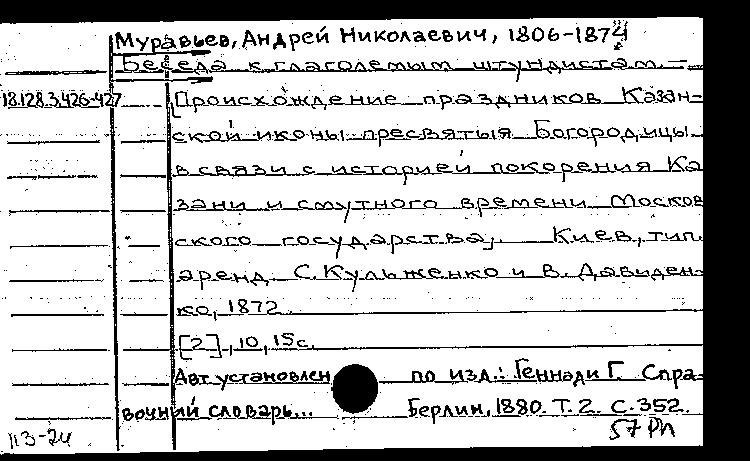 Муравьев, Андрей Николаевич, 1806-1874
Беседа к глаголемым штундистам. —
18.128.3.426-427 [Происхождение праздников Казан-
ской иконы пресвятыя Богородицы
в связи с историей покорения Ка
зани и смутного времени Москов
ского государства,. Киев, тип.
аренд. С. Кульженко и В. Давиден-
ко, 1872
[2], 10, 15 с.
Авт. установлен по изд.: Геннади Г. Спра-
вочний словарь... Берлин, 1880. Т. 2. С. 352.
113-24 57 Рп